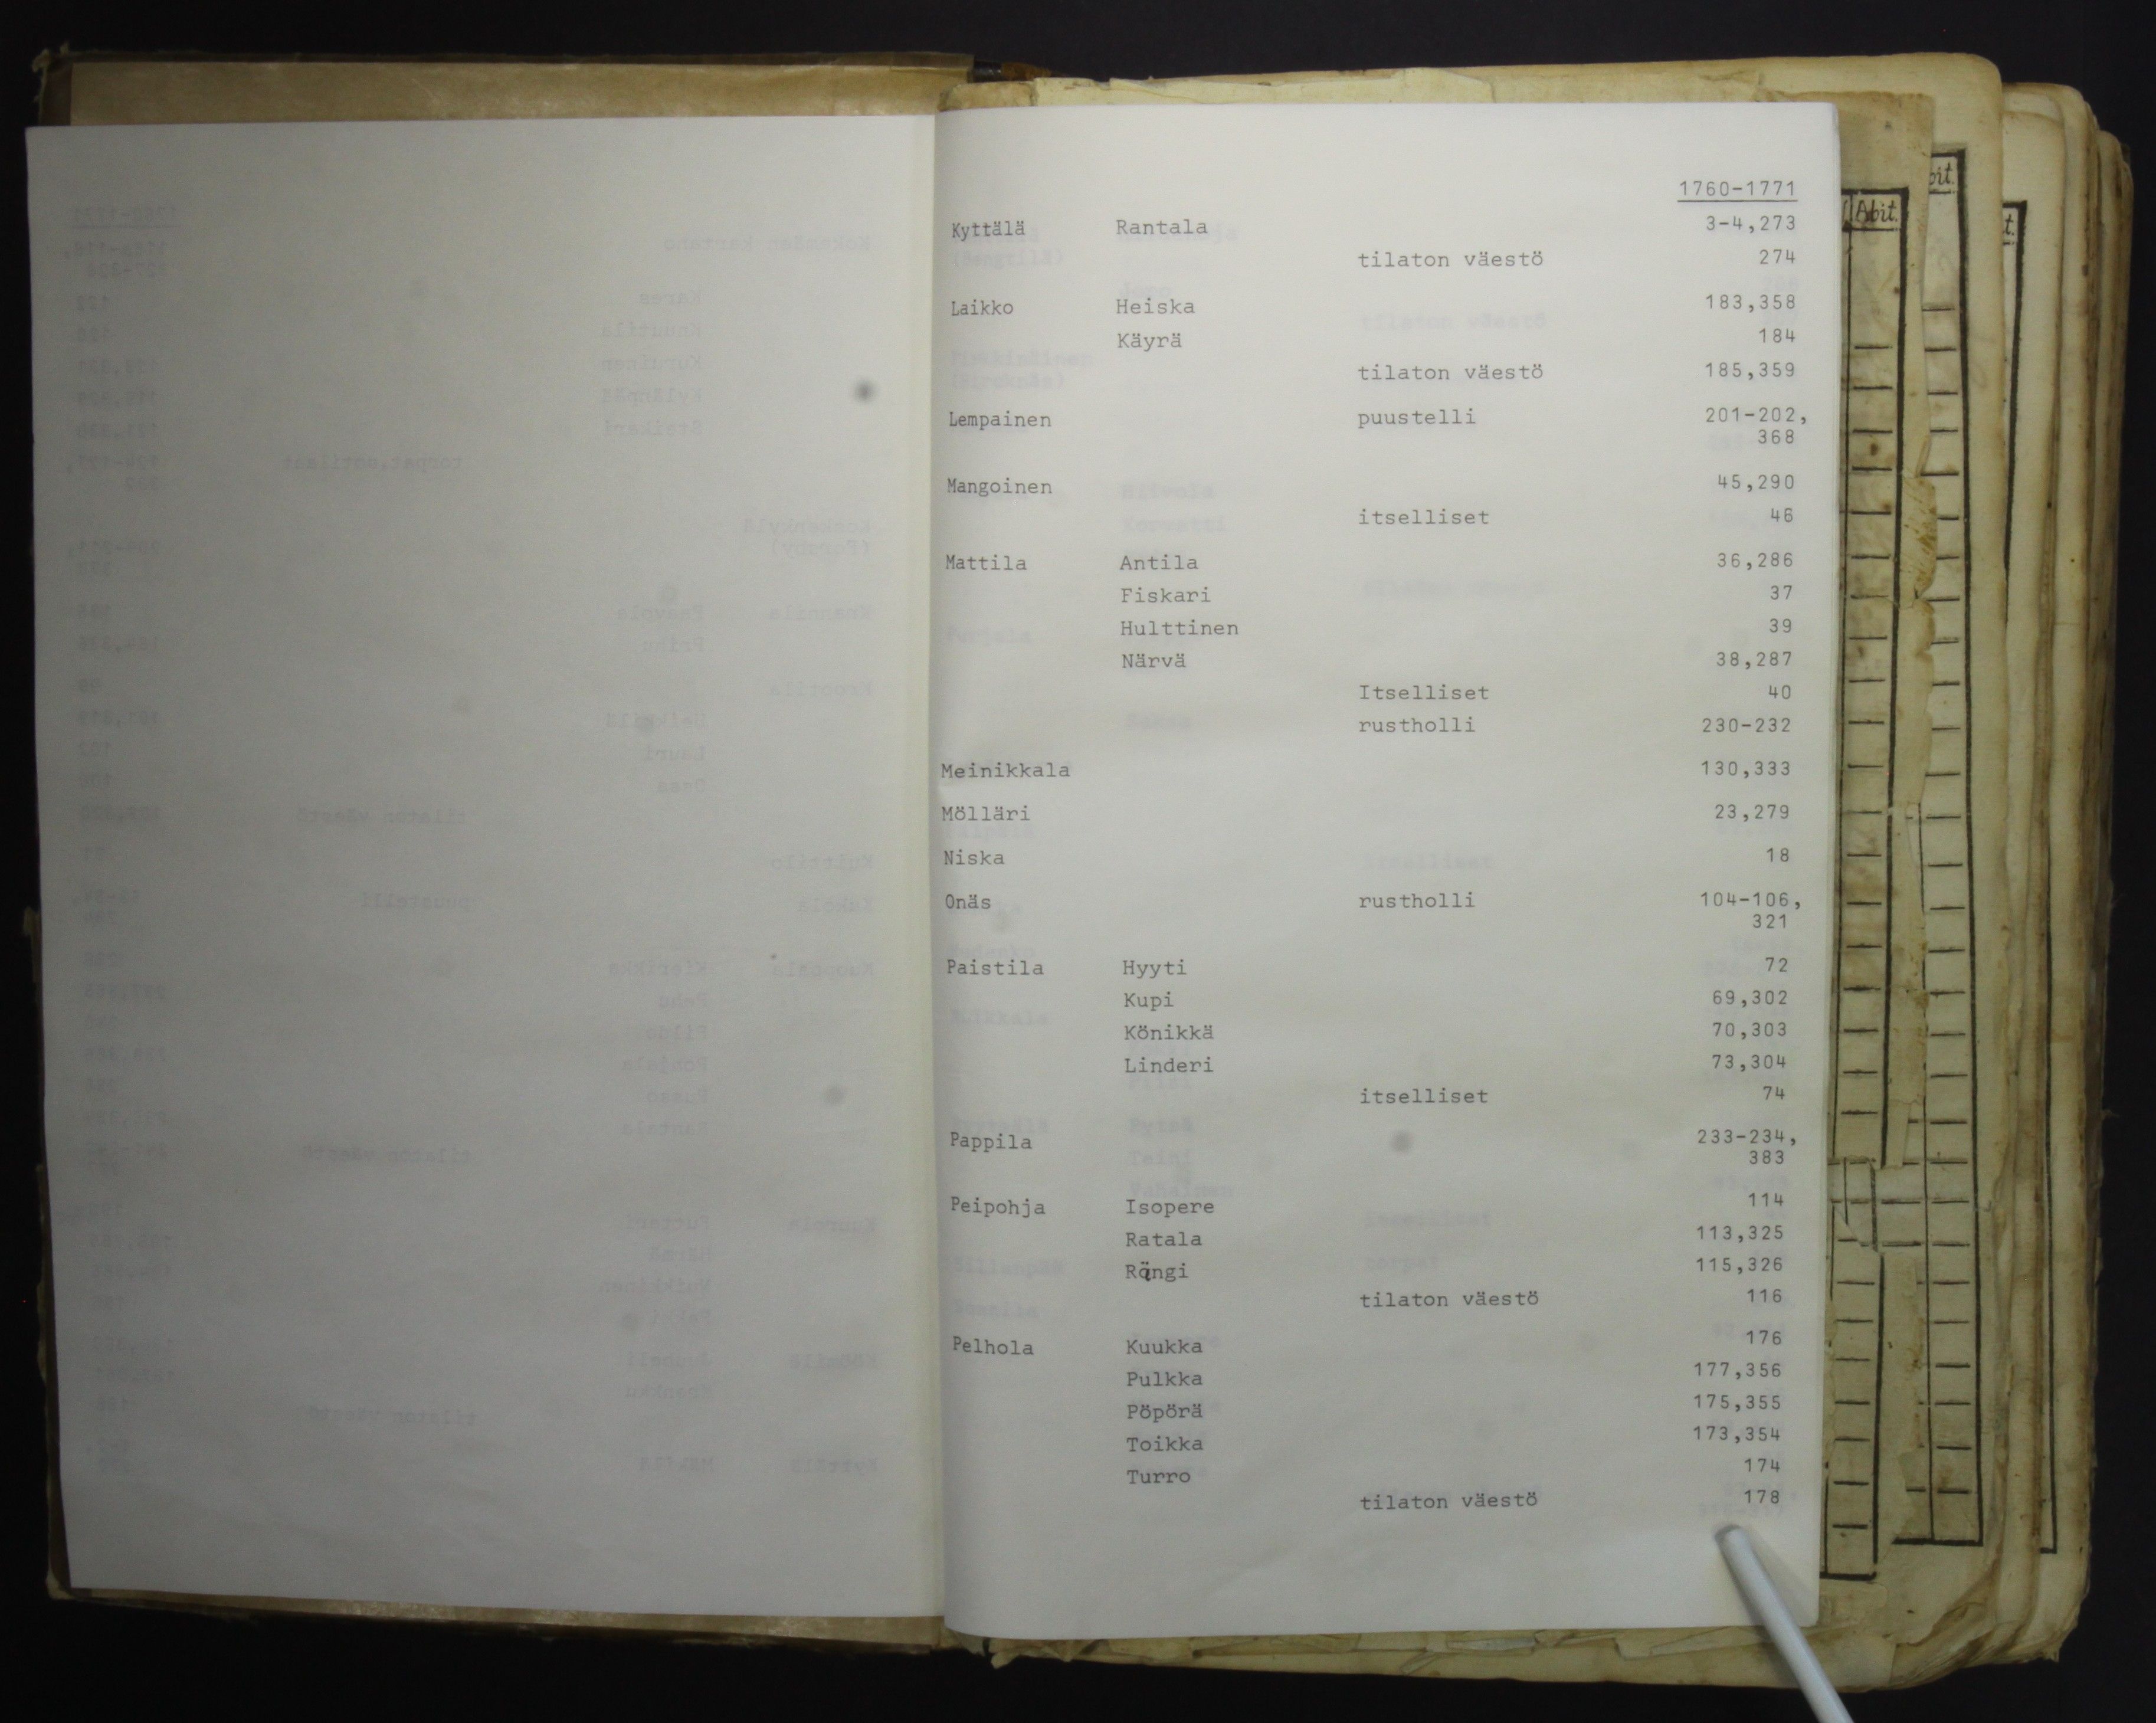 1760-1771
Kyttälä Rantala 3-4,273
tilaton väestö 274
Laikko Heiska 183,358
Käyrä 184
tilaton väestö 185,359
Lempainen puustelli 201-202,
368
Mangoinen 45,290
itselliset 46
Mattila Antila 36,286
Fiskari 37
Hulttinen 39
Närvä 38,287
Itselliset 40
rustholli 230-232
Meinikkala 130,333
Mölläri 23,279
Niska 18
Onäs rustholli 104-106,
321
Paistila Hyyti 72
Kupi 69,302
Könikkä 70,303
Linderi 73,304
itselliset 74
Pappila 233-234,
383
Peipohja Isopere 114
Ratala 113,325
115,326
tilaton väestö 116
Pelhola Kuukka 176
Pulkka 177,356
Pöpörä 175,355
Toikka 173,354
Turro 174
tilaton väestö 178
Abit.